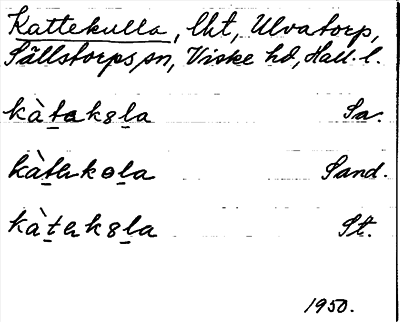 Kattekulla, lht, Ulvatorp,
Sällstorps sn, Viske hd, Hall. l.
kàtak8la Sa.
kàtɩkola Sand.
kàtɩk8la St.
1950.